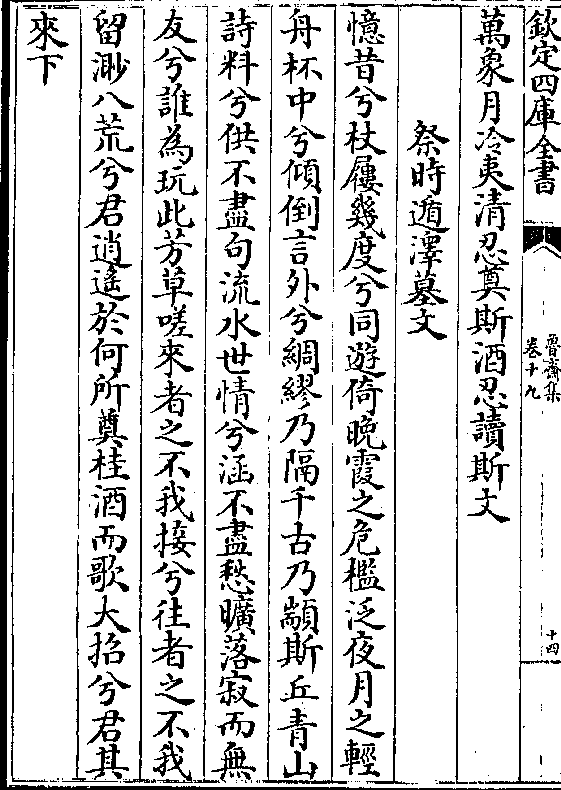 欽定四庫全書
魯齋集
卷十九
十四
萬象月冷夷清忍奠斯酒忍讀斯文
祭時遁澤墓文
憶昔兮杖屨幾度兮同遊倚晚霞之危檻泛夜月之輕
舟杯中兮傾倒言外兮綢繆乃隔千古乃顓斯丘青山
詩料兮供不盡句流水世情兮涵不盡愁曠落寂而無
友兮誰為玩此芳草嗟來者之不我接兮往者之不我
留渺八荒兮君逍遙於何所奠桂酒而歌大招兮君其
來下